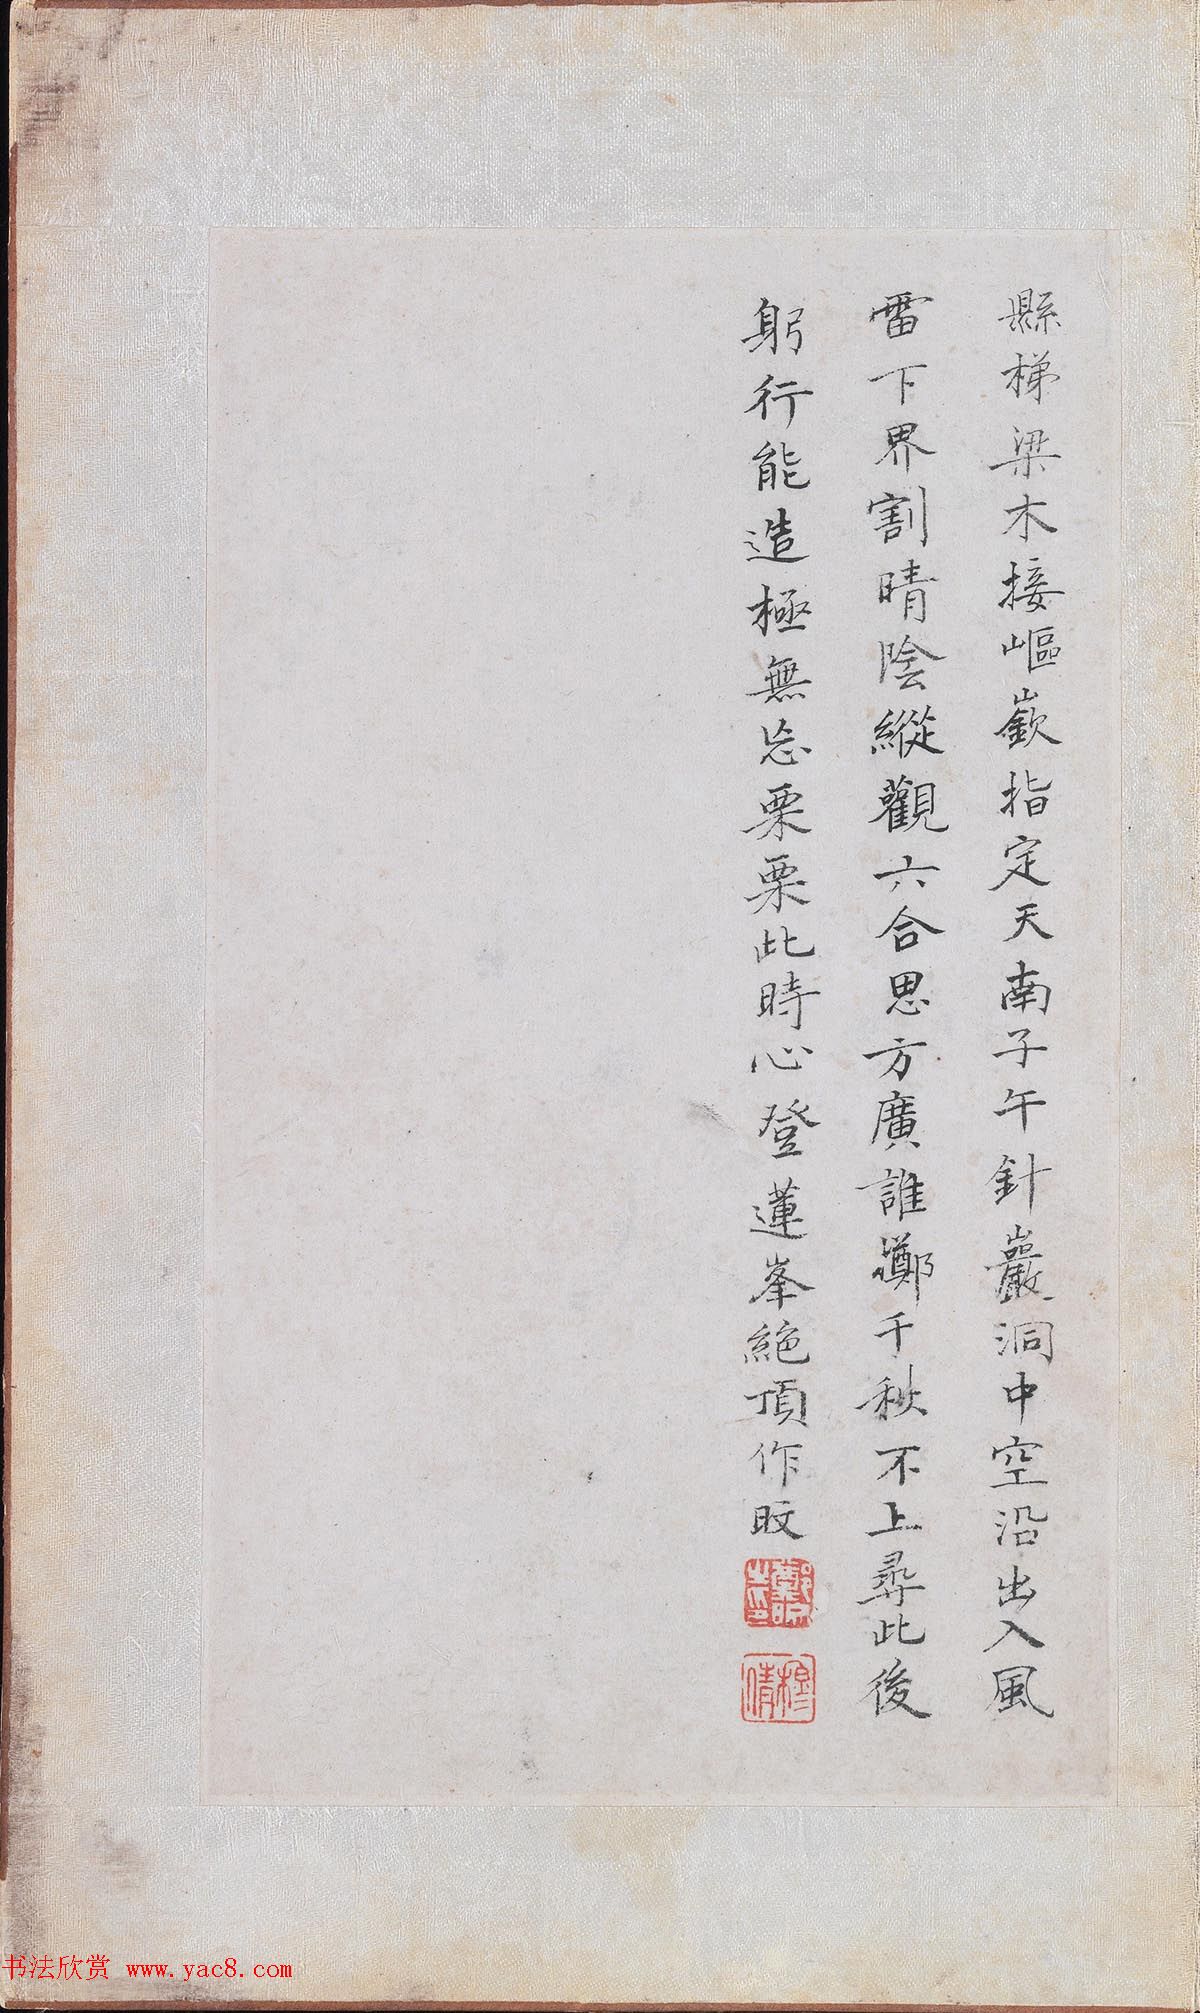 縣梯梁木接嶇嶔指定天南子午針巖洞中空沿出入風
雷下界割晴陰縱觀六合思方廣誰擲千秋不上尋此後
躬行能造極無忘栗栗此時心登蓮峯絕頂作旼
鄭旼之印
穆倩
书法欣赏 www.yac8.com